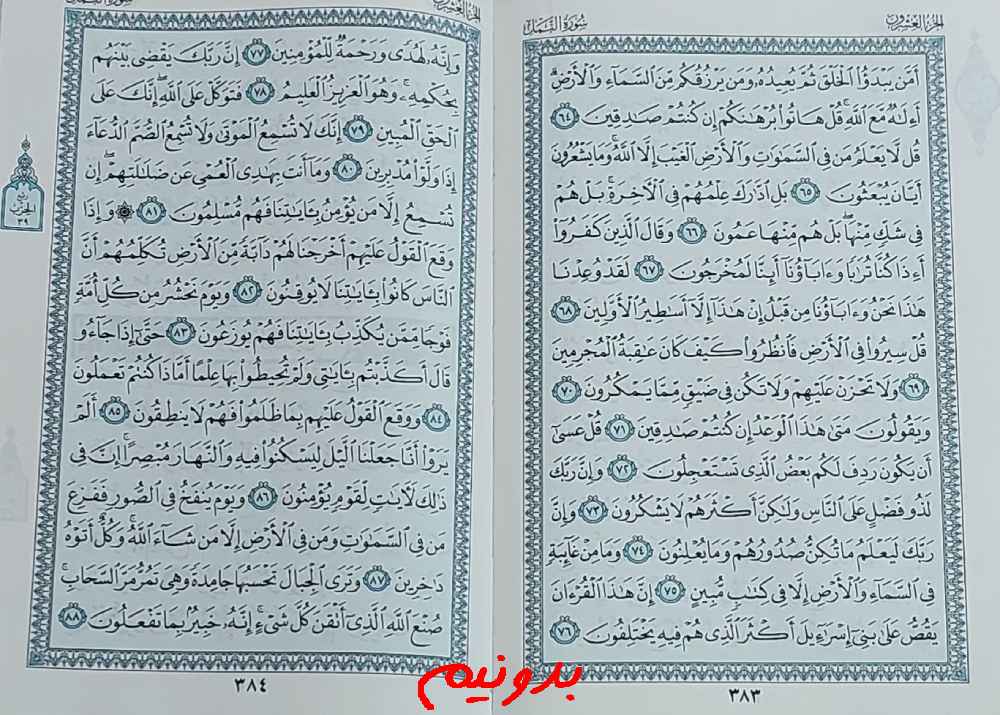 الجزء العشرون
سورة النمل
أَمَّن يَبْدَؤُا۟ ٱلْخَلْقَ ثُمَّ يُعِيدُهُۥ وَمَن يَرْزُقُكُم مِّنَ ٱلسَّمَآءِ وَٱلْأَرْضِ
أَءِلَٰهٌ مَّعَ ٱللَّهِ قُلْ هَاتُوا۟ بُرْهَٰنَكُمْ إِن كُنتُمْ صَٰدِقِينَ ٦٤
قُل لَّا يَعْلَمُ مَن فِى ٱلسَّمَٰوَٰتِ وَٱلْأَرْضِ ٱلْغَيْبَ إِلَّا ٱللَّهُ وَمَا يَشْعُرُونَ
أَيَّانَ يُبْعَثُونَ ٦٥ بَلِ ٱدَّٰرَكَ عِلْمُهُمْ فِى ٱلْءَاخِرَةِ بَلْ هُمْ
فِى شَكٍّ مِّنْهَا بَلْ هُم مِّنْهَا عَمُونَ ٦٦ وَقَالَ ٱلَّذِينَ كَفَرُوٓا۟
أَءِذَا كُنَّا تُرَٰبًا وَءَابَآؤُنَآ أَئِنَّا لَمُخْرَجُونَ ٦٧ لَقَدْ وُعِدْنَا
هَٰذَا نَحْنُ وَءَابَآؤُنَا مِن قَبْلُ إِنْ هَٰذَآ إِلَّآ أَسَٰطِيرُ ٱلْأَوَّلِينَ ٦٨
قُلْ سِيرُوا۟ فِى ٱلْأَرْضِ فَٱنظُرُوا۟ كَيْفَ كَانَ عَٰقِبَةُ ٱلْمُجْرِمِينَ
٦٩ وَلَا تَحْزَنْ عَلَيْهِمْ وَلَا تَكُن فِى ضَيْقٍ مِّمَّا يَمْكُرُونَ ٧٠
وَيَقُولُونَ مَتَىٰ هَٰذَا ٱلْوَعْدُ إِن كُنتُمْ صَٰدِقِينَ ٧١ قُلْ عَسَىٰٓ
أَن يَكُونَ رَدِفَ لَكُم بَعْضُ ٱلَّذِى تَسْتَعْجِلُونَ ٧٢ وَإِنَّ رَبَّكَ
لَذُو فَضْلٍ عَلَى ٱلنَّاسِ وَلَٰكِنَّ أَكْثَرَهُمْ لَا يَشْكُرُونَ ٧٣ وَإِنَّ
رَبَّكَ لَيَعْلَمُ مَا تُكِنُّ صُدُورُهُمْ وَمَا يُعْلِنُونَ ٧٤ وَمَا مِنْ غَآئِبَةٍ
فِى ٱلسَّمَآءِ وَٱلْأَرْضِ إِلَّا فِى كِتَٰبٍ مُّبِينٍ ٧٥ إِنَّ هَٰذَا ٱلْقُرْءَانَ
يَقُصُّ عَلَىٰ بَنِىٓ إِسْرَٰٓءِيلَ أَكْثَرَ ٱلَّذِى هُمْ فِيهِ يَخْتَلِفُونَ ٧٦
٣٨٣
الجزء العشرون
سورة النمل
وَإِنَّهُۥ لَهُدًى وَرَحْمَةٌ لِّلْمُؤْمِنِينَ ٧٧ إِنَّ رَبَّكَ يَقْضِى بَيْنَهُم
بِحُكْمِهِۦ وَهُوَ ٱلْعَزِيزُ ٱلْعَلِيمُ ٧٨ فَتَوَكَّلْ عَلَى ٱللَّهِ إِنَّكَ عَلَى
ٱلْحَقِّ ٱلْمُبِينِ ٧٩ إِنَّكَ لَا تُسْمِعُ ٱلْمَوْتَىٰ وَلَا تُسْمِعُ ٱلصُّمَّ ٱلدُّعَآءَ
إِذَا وَلَّوْا۟ مُدْبِرِينَ ٨٠ وَمَآ أَنتَ بِهَٰدِى ٱلْعُمْىِ عَن ضَلَٰلَتِهِمْ إِن
تُسْمِعُ إِلَّا مَن يُؤْمِنُ بِـَٔايَٰتِنَا فَهُم مُّسْلِمُونَ ٨١ ۞ وَإِذَا
وَقَعَ ٱلْقَوْلُ عَلَيْهِمْ أَخْرَجْنَا لَهُمْ دَآبَّةً مِّنَ ٱلْأَرْضِ تُكَلِّمُهُمْ أَنَّ
ٱلنَّاسَ كَانُوا۟ بِـَٔايَٰتِنَا لَا يُوقِنُونَ ٨٢ وَيَوْمَ نَحْشُرُ مِن كُلِّ أُمَّةٍ
فَوْجًا مِّمَّن يُكَذِّبُ بِـَٔايَٰتِنَا فَهُمْ يُوزَعُونَ ٨٣ حَتَّىٰٓ إِذَا جَآءُو
قَالَ أَكَذَّبْتُم بِـَٔايَٰتِى وَلَمْ تُحِيطُوا۟ بِهَا عِلْمًا أَمَّاذَا كُنتُمْ تَعْمَلُونَ
٨٤ وَوَقَعَ ٱلْقَوْلُ عَلَيْهِم بِمَا ظَلَمُوا۟ فَهُمْ لَا يَنطِقُونَ ٨٥ أَلَمْ
يَرَوْا۟ أَنَّا جَعَلْنَا ٱلَّيْلَ لِيَسْكُنُوا۟ فِيهِ وَٱلنَّهَارَ مُبْصِرًا إِنَّ فِى
ذَٰلِكَ لَءَايَٰتٍ لِّقَوْمٍ يُؤْمِنُونَ ٨٦ وَيَوْمَ يُنفَخُ فِى ٱلصُّورِ فَفَزِعَ
مَن فِى ٱلسَّمَٰوَٰتِ وَمَن فِى ٱلْأَرْضِ إِلَّا مَن شَآءَ ٱللَّهُ وَكُلٌّ أَتَوْهُ
دَٰخِرِينَ ٨٧ وَتَرَى ٱلْجِبَالَ تَحْسَبُهَا جَامِدَةً وَهِىَ تَمُرُّ مَرَّ ٱلسَّحَابِ
صُنْعَ ٱللَّهِ ٱلَّذِىٓ أَتْقَنَ كُلَّ شَىْءٍ إِنَّهُۥ خَبِيرٌۢ بِمَا تَفْعَلُونَ ٨٨
ربع
الحزب
٣٩
٣٨٤
بدونیم